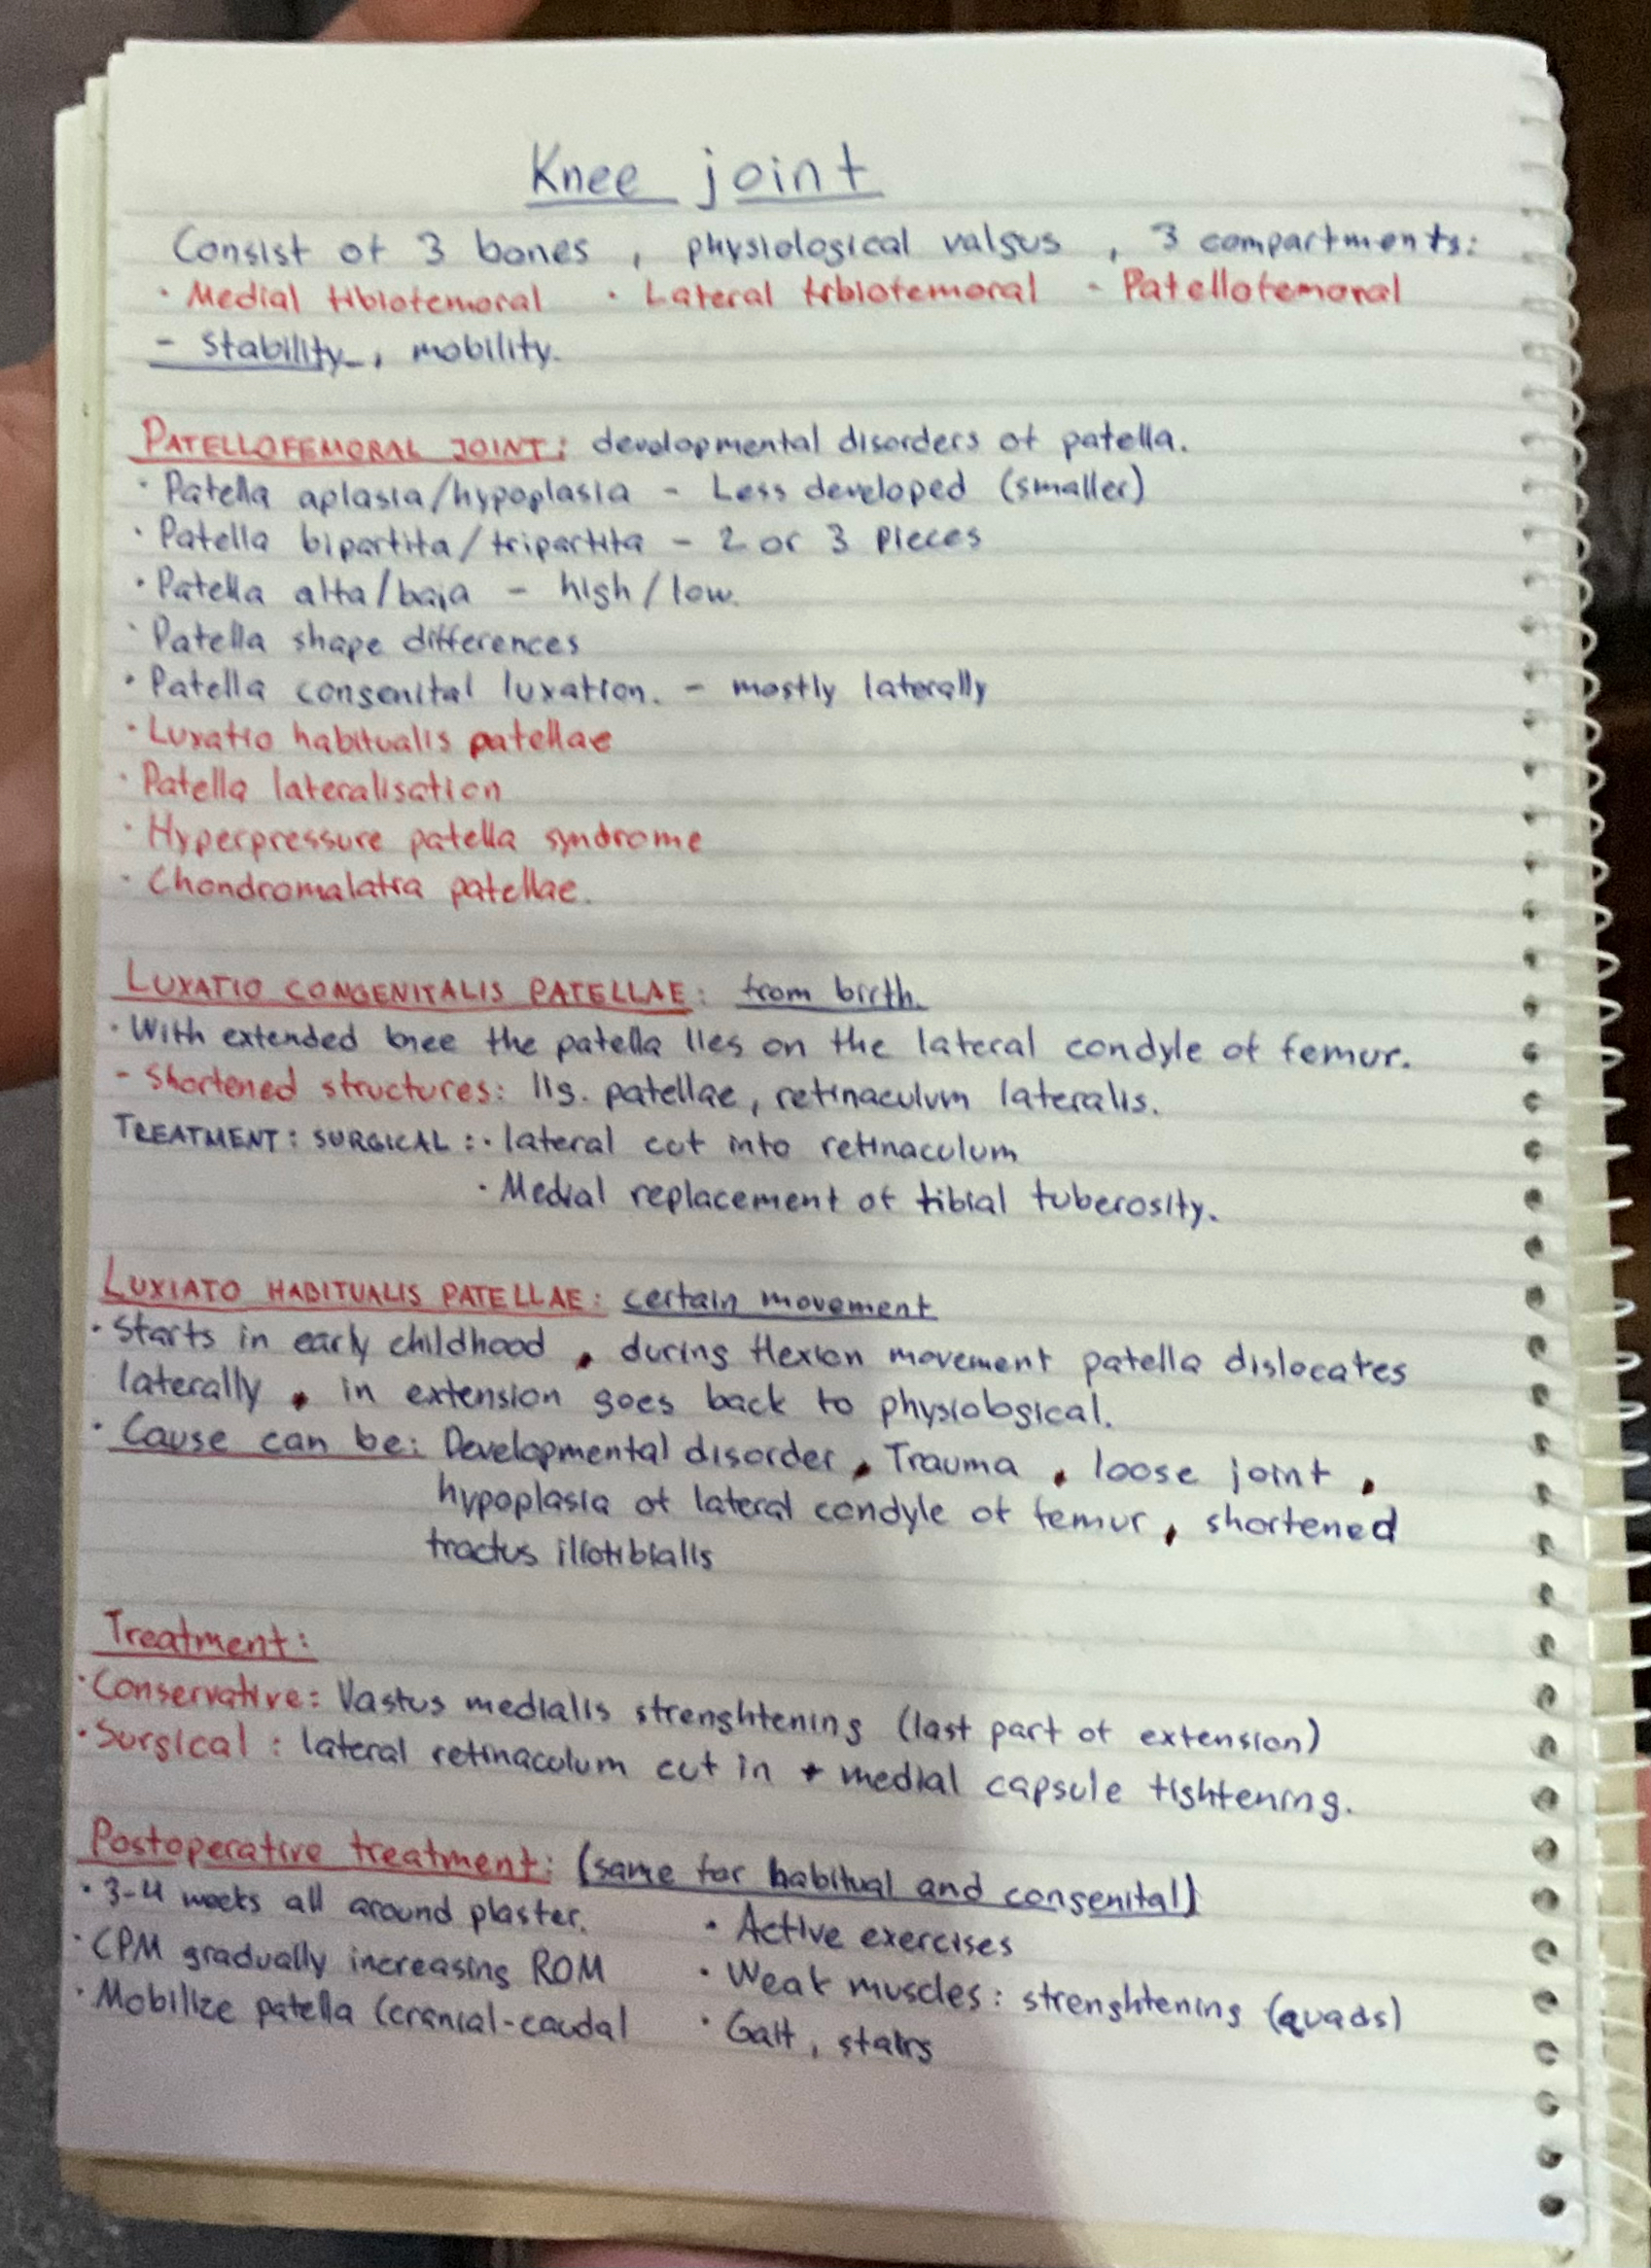 Knee joint
Consist of 3 bones , physiological valgus , 3 compartments:
· Medial tibiofemoral · Lateral tibiofemoral - Patellofemoral
- Stability , mobility.
PATELLOFEMORAL JOINT: developmental disorders of patella.
· Patella aplasia/hypoplasia - Less developed (smaller)
· Patella bipartita/tripartita - 2 or 3 pieces
· Patella alta/baja - high/low.
· Patella shape differences
· Patella congenital luxation. - mostly laterally
· Luxatio habitualis patellae
· Patella lateralisation
· Hyperpressure patella syndrome
· Chondromalatia patellae.
LUXATIO CONGENITALIS PATELLAE: from birth.
· With extended knee the patella lies on the lateral condyle of femur.
- Shortened structures: lig. patellae, retinaculum lateralis.
TREATMENT: SURGICAL: · lateral cut into retinaculum
· Medial replacement of tibial tuberosity.
LUXIATO HABITUALIS PATELLAE: certain movement
· Starts in early childhood , during flexion movement patella dislocates
laterally , in extension goes back to physiological.
· Cause can be: Developmental disorder , Trauma , loose joint ,
hypoplasia of lateral condyle of femur , shortened
tractus illiotibialis
Treatment:
· Conservative: Vastus medialis strenghtening (last part of extension)
· Surgical: lateral retinaculum cut in + medial capsule tightening.
Postoperative treatment: (same for habitual and congenital)
· 3-4 weeks all around plaster. · Active exercises
· CPM gradually increasing ROM · Weak muscles: strenghtening (quads)
· Mobilize patella (cranial-caudal · Gait, stairs